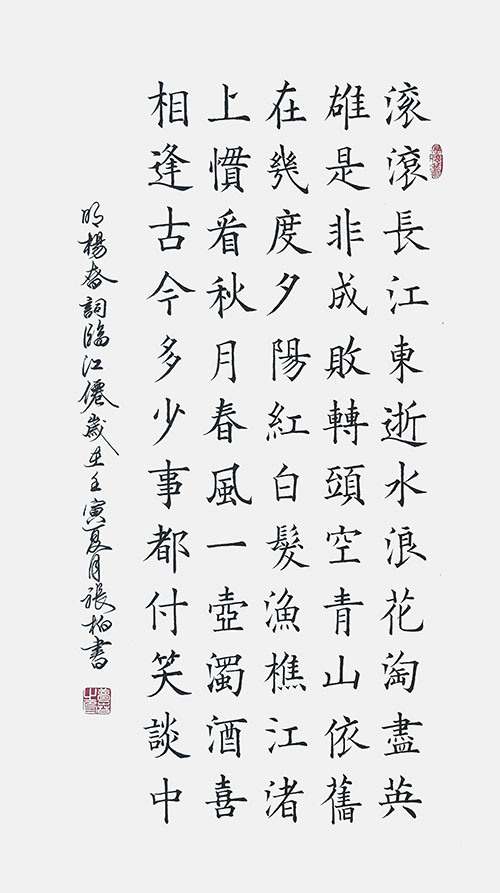 滚滾長江東逝水浪花淘盡英
雄是非成敗轉頭空青山依舊
在幾度夕陽紅白髮漁樵江渚
上慣看秋月春風一壺濁酒喜
相逢古今多少事都付笑談中
明楊春詞臨江僊歲在壬寅夏月張柏書